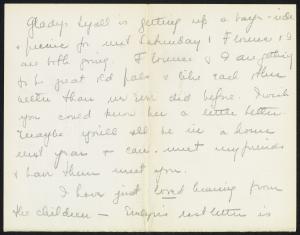 Gladys Lyall is getting up a bays - ride
& picnic for next Saturday & Florence & I
are both going. Florence & I are getting
to be great old pals & like each other
better than we ever did before. I wish
you could know her a little better.
Maybe you'll all be in a house
next year & can meet my friends
& have them meet you.
I have just loved hearing from
the children — Evelyn's last letter is